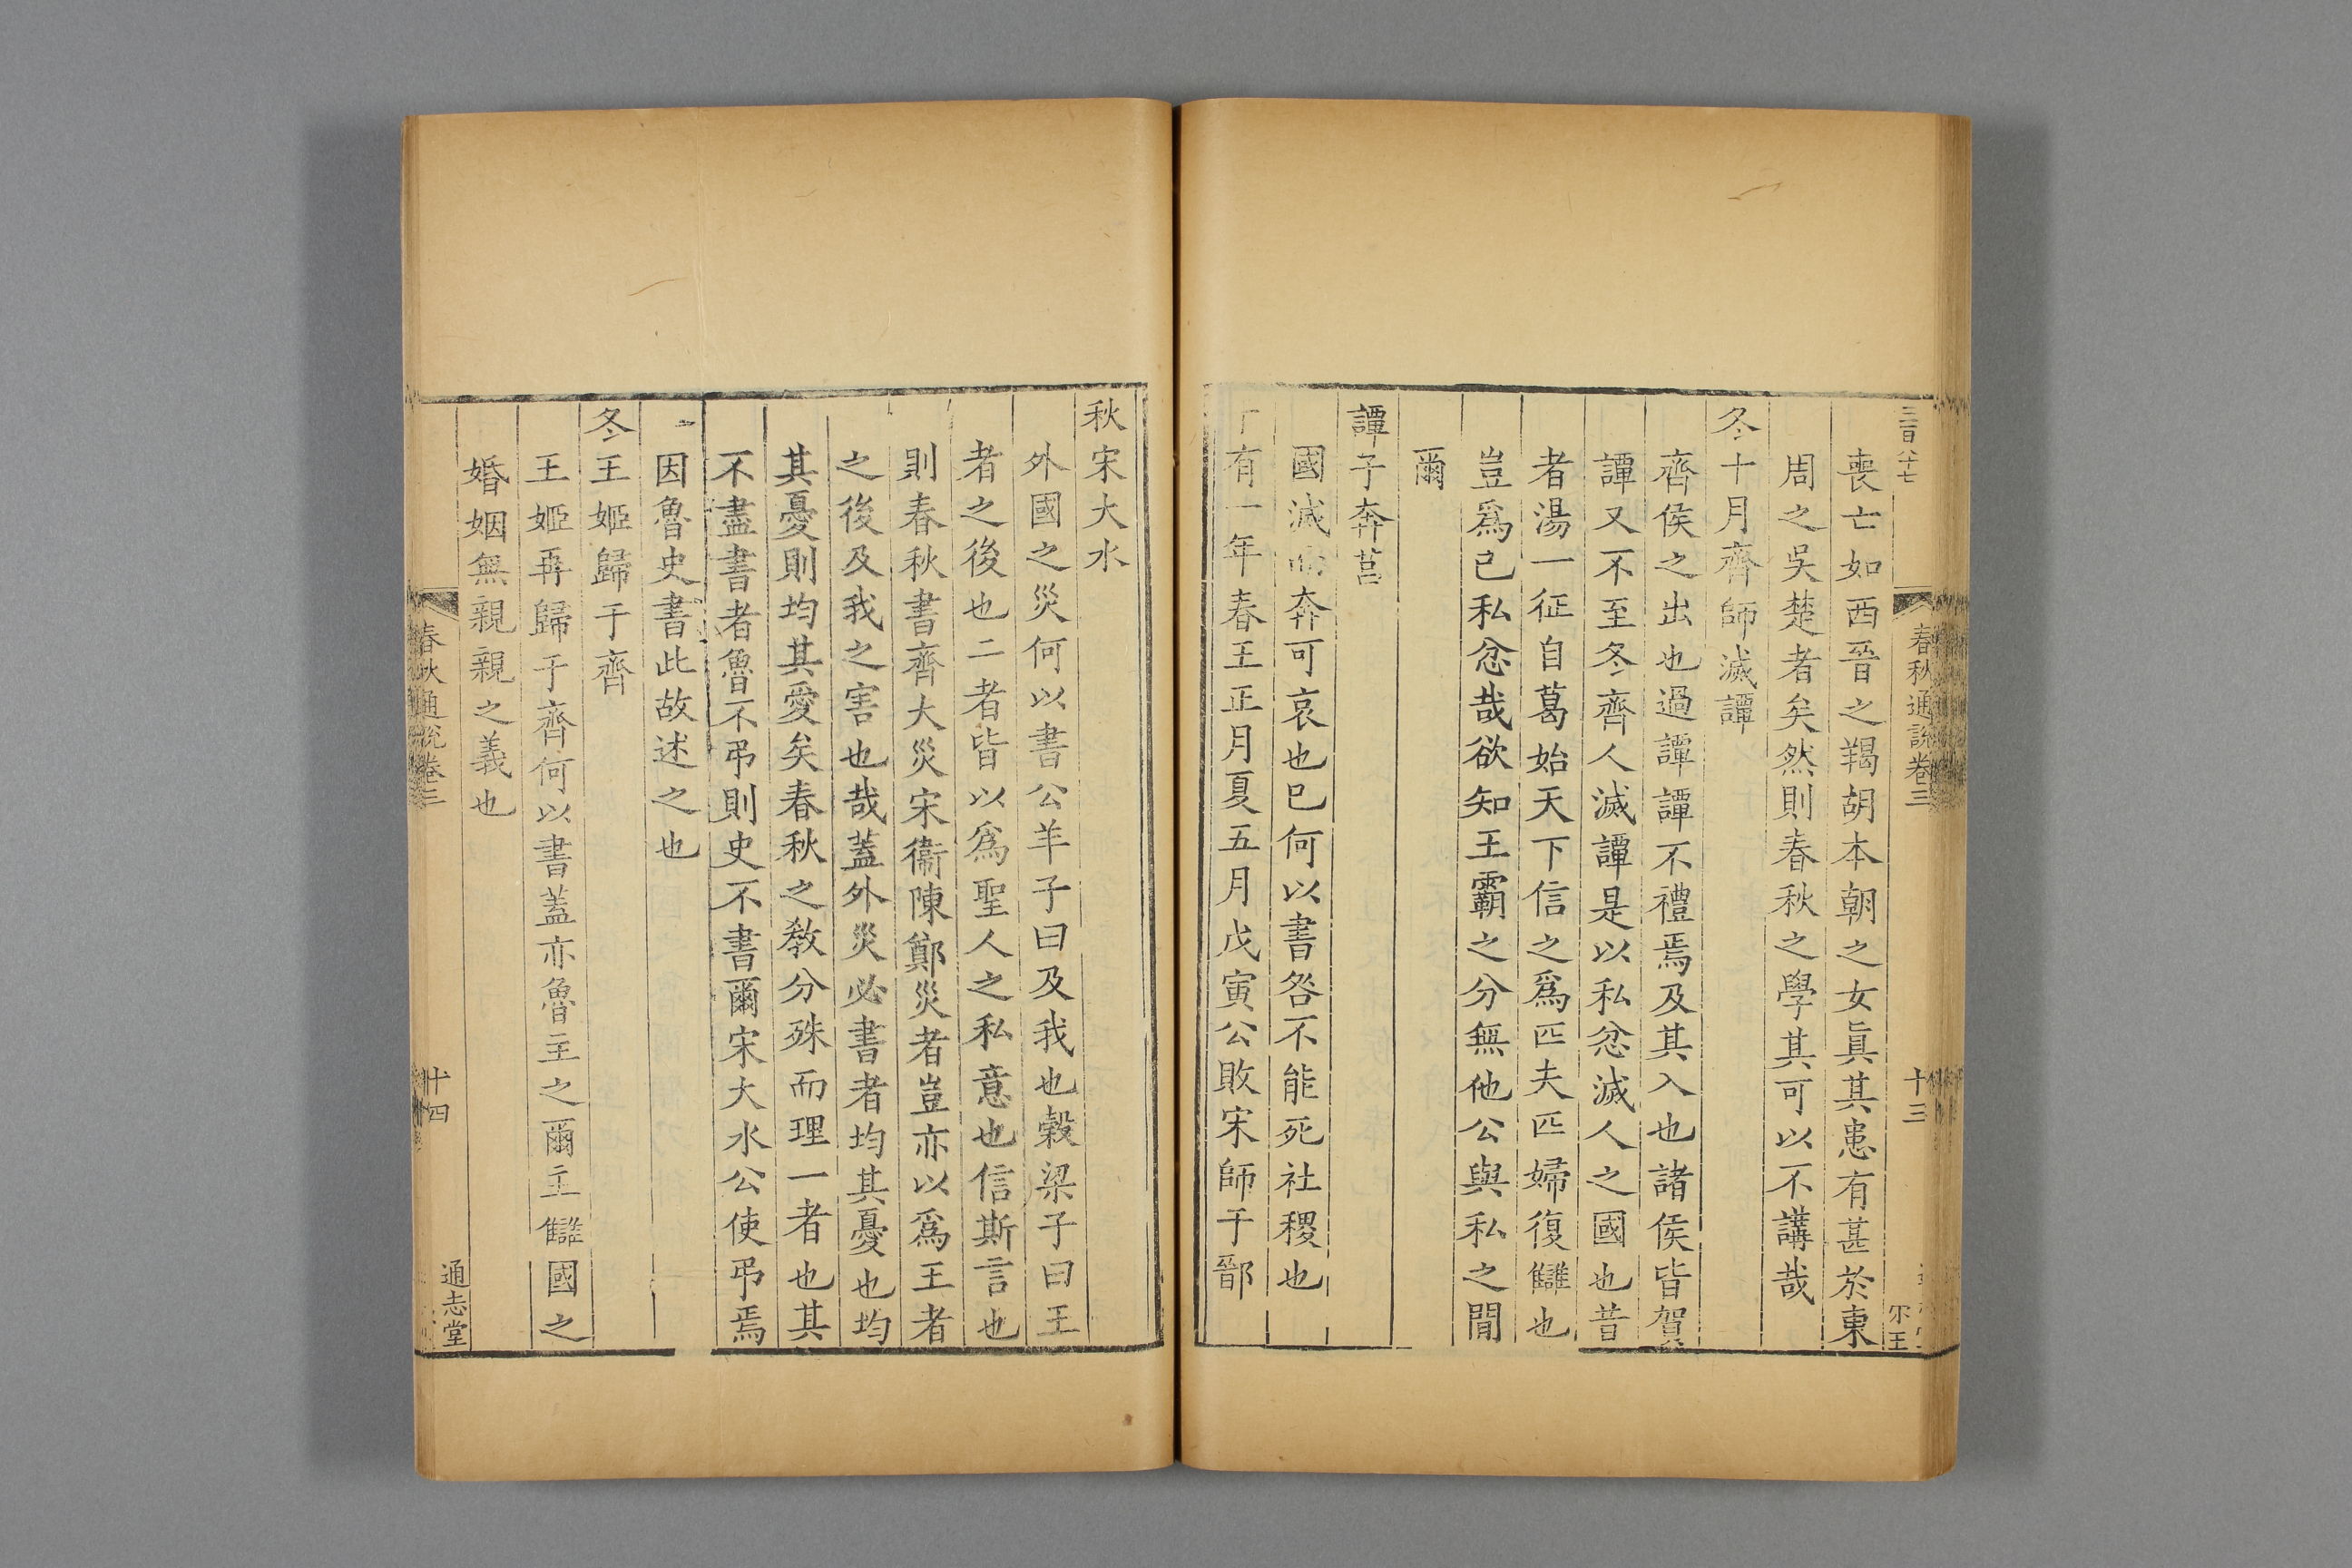 三百八十七
春秋通說卷三
十三
喪亡如西晉之羯胡本朝之女眞其患有甚於東
周之吳楚者矣然則春秋之學其可以不講哉
冬十月齊師滅譚
齊侯之出也過譚譚不禮焉及其入也諸侯皆賀
譚又不至冬齊人滅譚是以私忿滅人之國也昔
者湯一征自葛始天下信之爲匹夫匹婦復讎也
豈爲己私忿哉欲知王霸之分無他公與私之閒
爾
譚子奔莒
國滅而奔可哀也已何以書咎不能死社稷也
有一年春王正月夏五月戊寅公敗宋師于鄑
秋宋大水
外國之災何以書公羊子曰及我也穀梁子曰王
者之後也二者皆以爲聖人之私意也信斯言也
則春秋書齊大災宋衞陳鄭災者豈亦以爲王者
之後及我之害也哉蓋外災必書者均其憂也均
其憂則均其愛矣春秋之教分殊而理一者也其
不盡書者魯不弔則史不書爾宋大水公使弔焉
因魯史書此故述之也
冬王姬歸于齊
王姬再歸于齊何以書蓋亦魯主之爾主讎國之
婚姻無親親之義也
春秋通說卷三
十四
通志堂